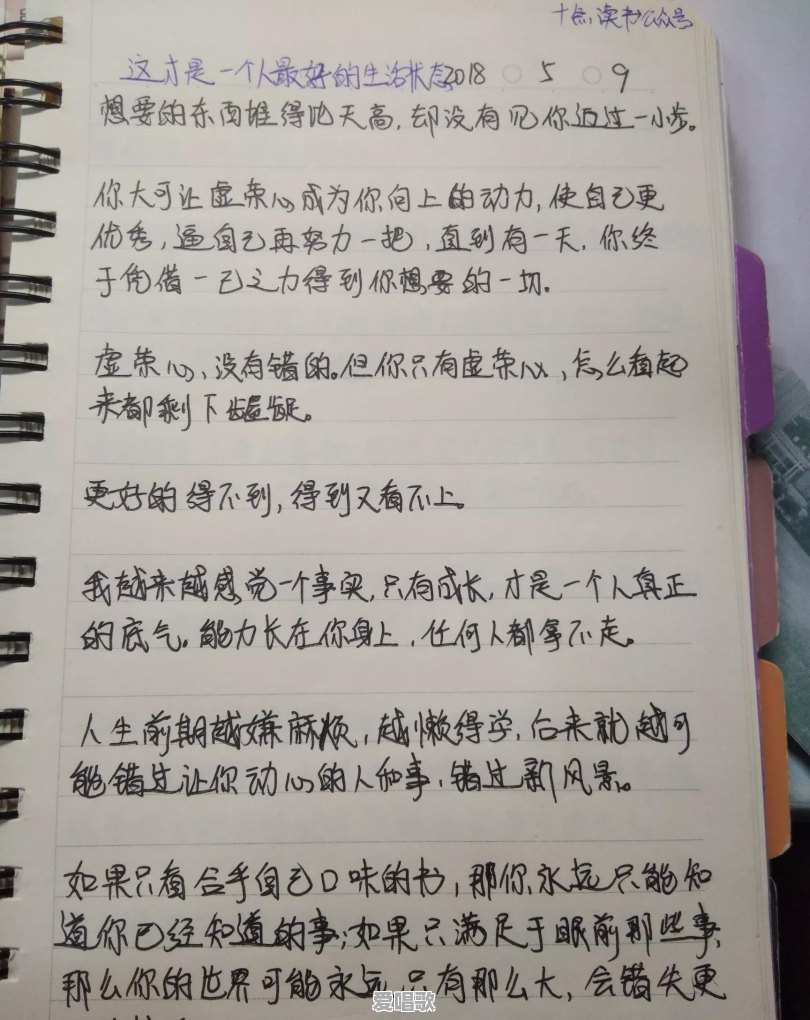 十点读书公众号
这才是一个人最好的生活状态2018 5 9
想要的东西堆得比天高,却没有见你迈过一小步。
你大可让虚荣心成为你向上的动力,使自己更
优秀,逼自己再努力一把,直到有一天,你终
于凭借一己之力得到你想要的一切。
虚荣心,没有错的。但你只有虚荣心,怎么看起
来都剩下龌龊。
更好的得不到,得到又看不上。
我越来越感觉一个事实,只有成长,才是一个人真正
的底气。能力长在你身上,任何人都拿不走。
人生前期越嫌麻烦,越懒得学,后来就越可
能错过让你动心的人和事,错过新风景。
如果只看合乎自己口味的书,那你永远只能知
道你已经知道的事;如果只满足于眼前那些事,
那么你的世界可能永远只有那么大,会错失更
爱唱歌